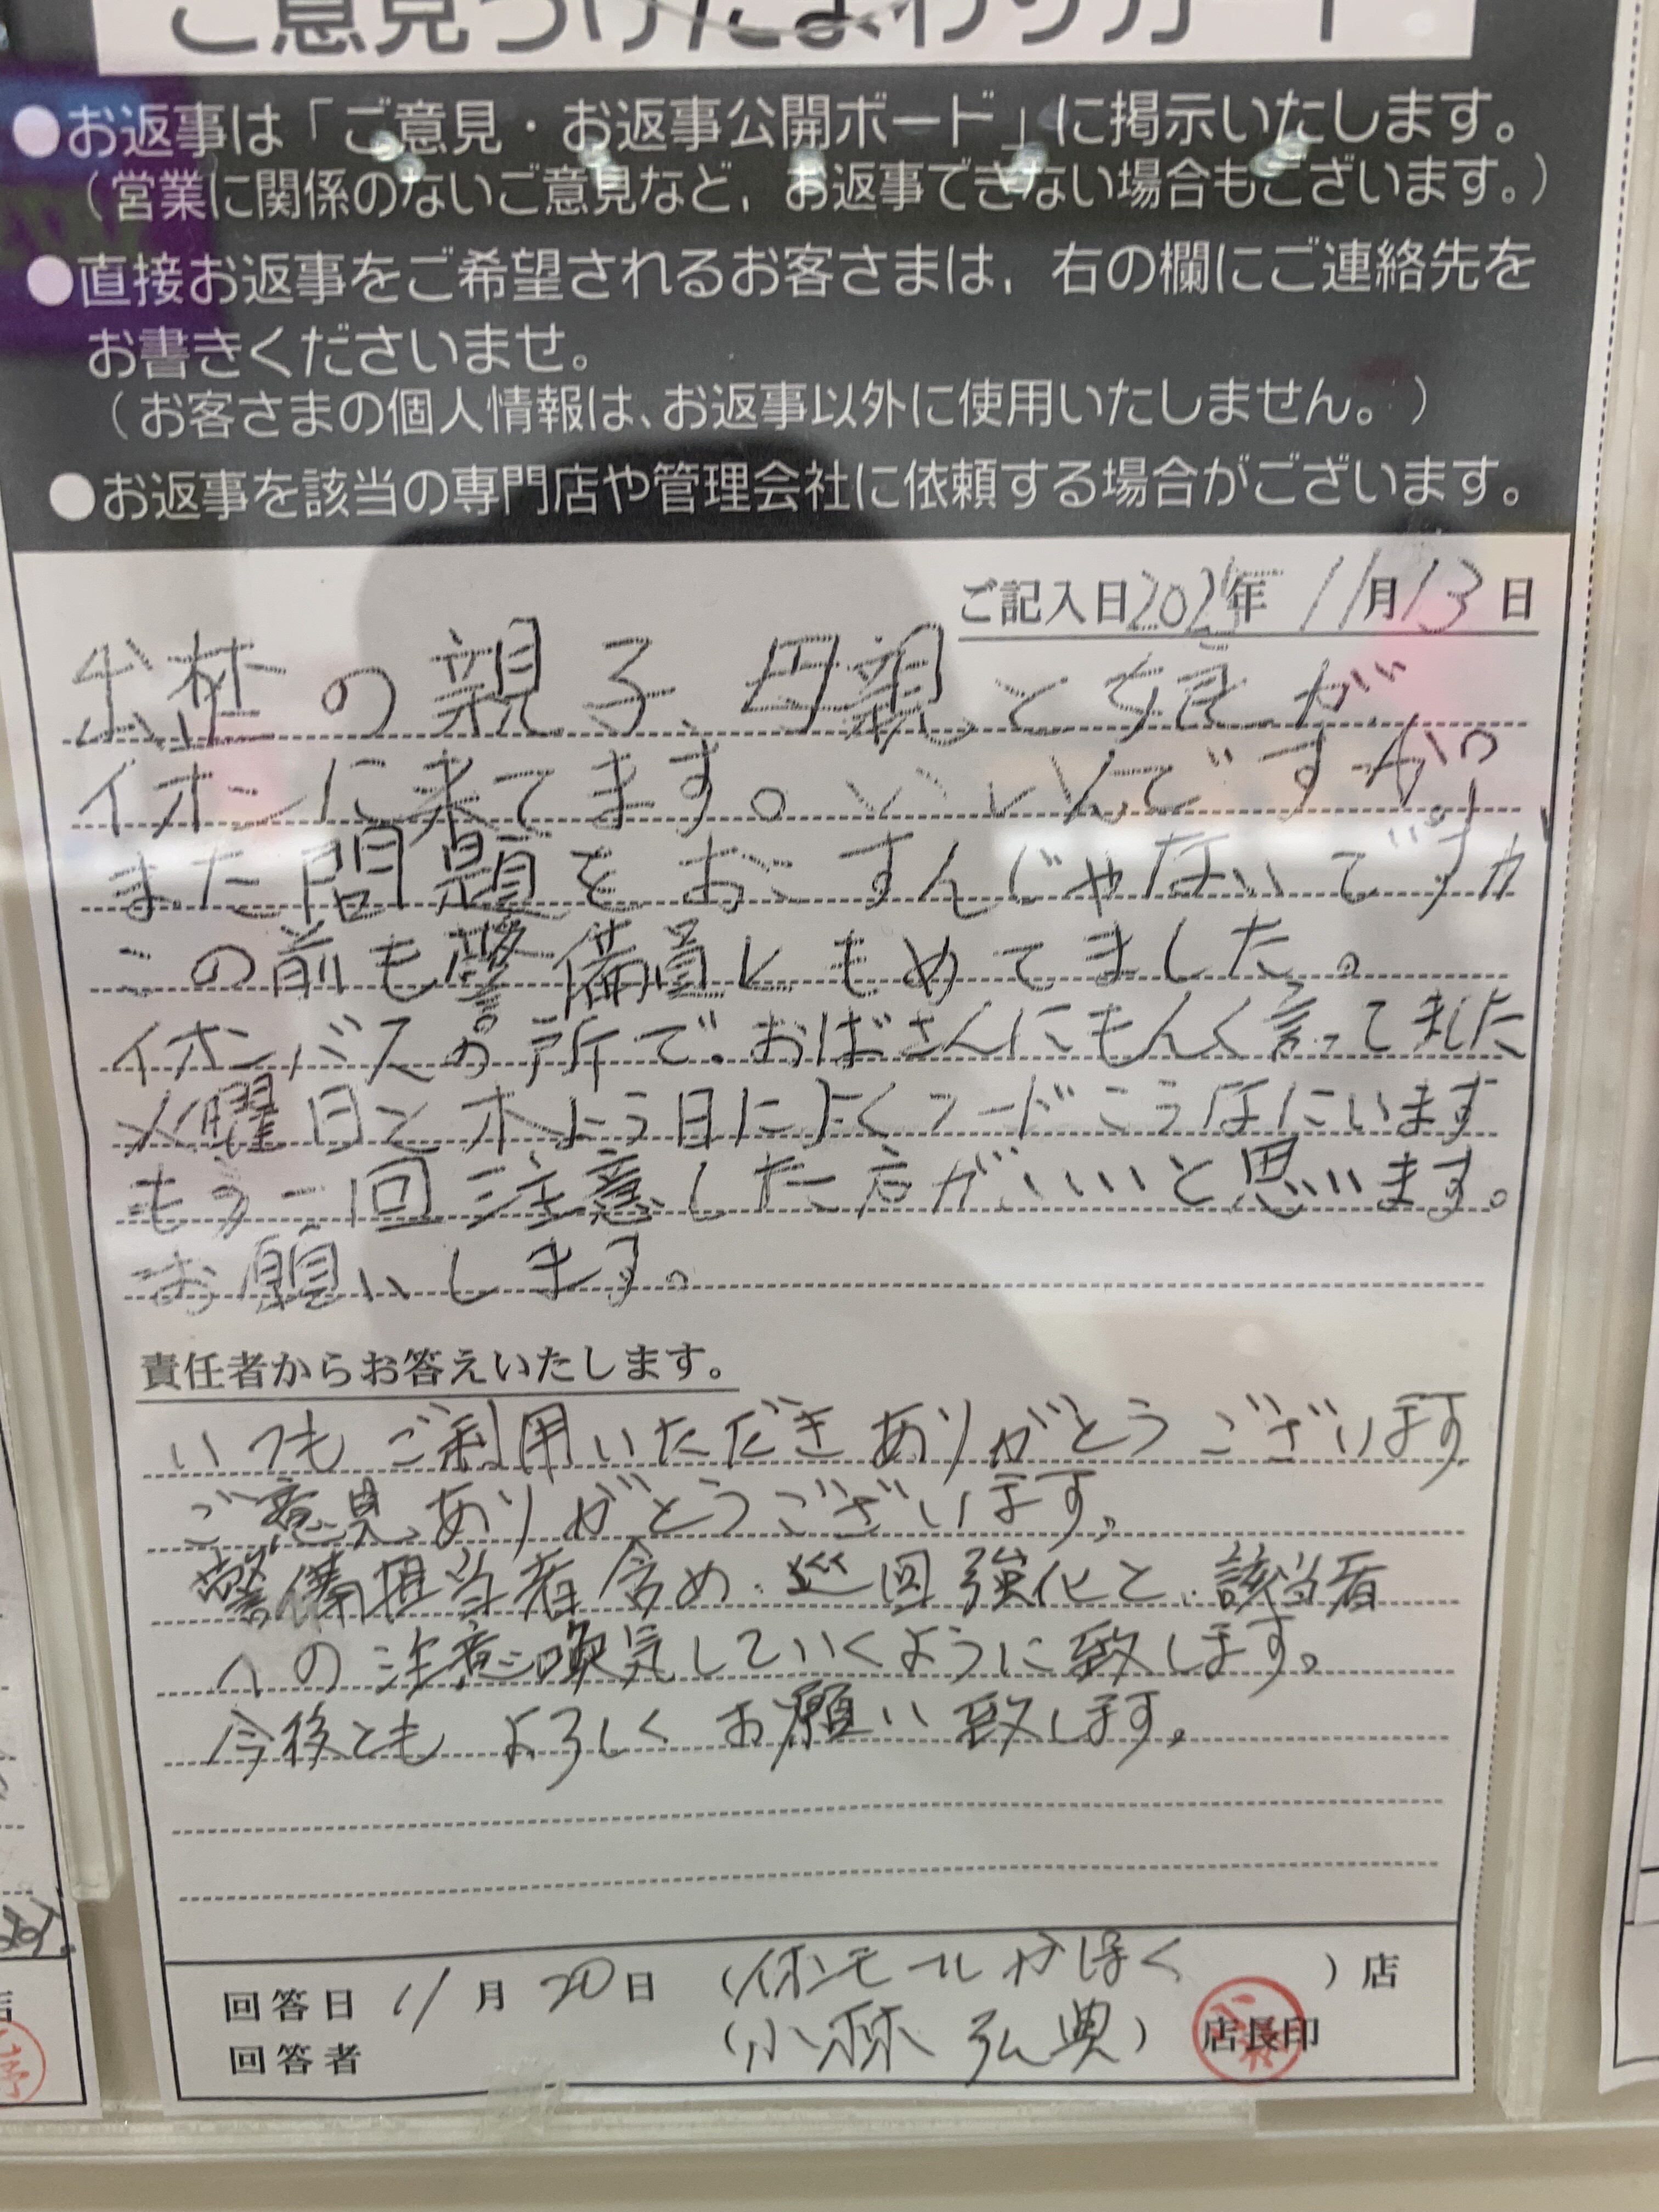 ご意見うけたまわりカード
●お返事は「ご意見・お返事公開ボード」に掲示いたします。
（営業に関係のないご意見など、お返事できない場合もございます。）
●直接お返事をご希望されるお客さまは、右の欄にご連絡先を
お書きくださいませ。
（お客さまの個人情報は、お返事以外に使用いたしません。）
●お返事を該当の専門店や管理会社に依頼する場合がございます。
ご記入日 年 11月13日
の親子、母親と娘が
イオンに来てます。いいんですか。
また問題をおこすんじゃないですか
この前も警備員ともめてました。
イオンバスの所で、おばさんにもんく言ってました
火曜日と木よう日によくフードこうなにいます
もう一回注意した方がいいと思います。
お願いします。
責任者からお答えいたします。
いつもご利用いただきありがとうございます
ご意見ありがとうございます。
警備担当者含め、巡回強化と、該当者
への注意喚気していくように致します。
今後ともよろしくお願い致します。
回答日 11月20日 （イオンモールかほく ）店
回答者 （小林 弘典） 店長印